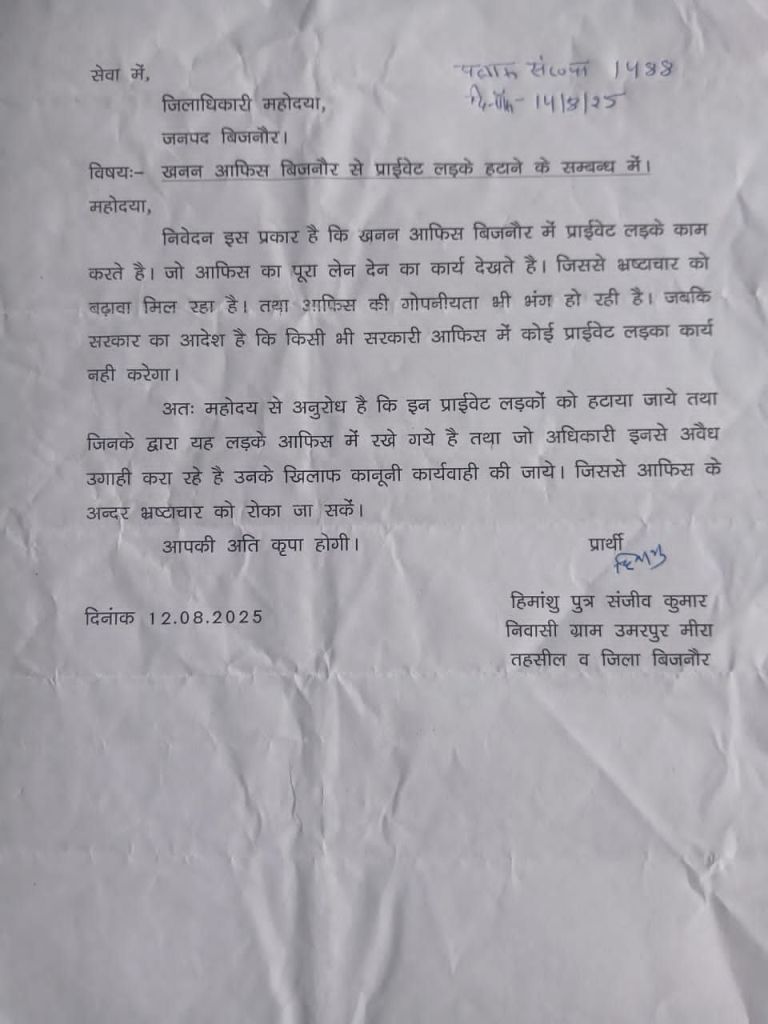 सेवा में,
पत्रांक संख्या 1488
दिनांक- 14/8/25
जिलाधिकारी महोदया,
जनपद बिजनौर।
विषयः- खनन आफिस बिजनौर से प्राईवेट लड़के हटाने के सम्बन्ध में।
महोदया,
निवेदन इस प्रकार है कि खनन आफिस बिजनौर में प्राईवेट लड़के काम
करते है। जो आफिस का पूरा लेन देन का कार्य देखते है। जिससे भ्रष्टाचार को
बढ़ावा मिल रहा है। तथा आफिस की गोपनीयता भी भंग हो रही है। जबकि
सरकार का आदेश है कि किसी भी सरकारी आफिस में कोई प्राईवेट लड़का कार्य
नही करेगा।
अतः महोदय से अनुरोध है कि इन प्राईवेट लड़कों को हटाया जाये तथा
जिनके द्वारा यह लड़के आफिस में रखे गये है तथा जो अधिकारी इनसे अवैध
उगाही करा रहे है उनके खिलाफ कानूनी कार्यवाही की जाये। जिससे आफिस के
अन्दर भ्रष्टाचार को रोका जा सकें।
आपकी अति कृपा होगी।
प्रार्थी
हिमांशु
हिमांशु पुत्र संजीव कुमार
दिनांक 12.08.2025
निवासी ग्राम उमरपुर मीरा
तहसील व जिला बिजनौर